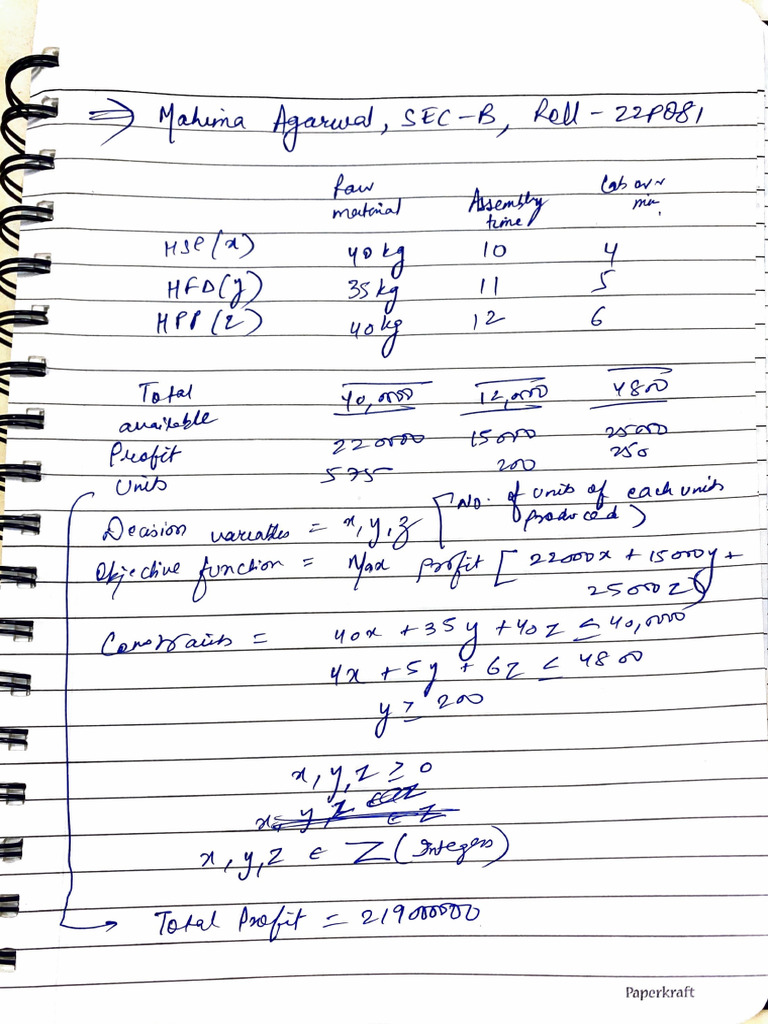 ⇒ Mahima Agarwal, SEC-B, Roll - 22P081
Raw material Assembly time Labour min.
HSP(x) 40 kg 10 4
HFD(y) 35 kg 11 5
HPP(z) 40 kg 12 6
Total available 40,000 12,000 4800
Profit 22000 15000 25000
Units 575 200 250
Decision variables = x, y, z [No. of units of each units produced)
Objective function = Max profit [22000x + 15000y +
25000z)
Constraints = 40x + 35y + 40z ≤ 40,000
4x + 5y + 6z ≤ 4800
y ≥ 200
x, y, z ≥ 0
x, y, z ∈ Z (Integers)
Total Profit = 21900000
Paperkraft